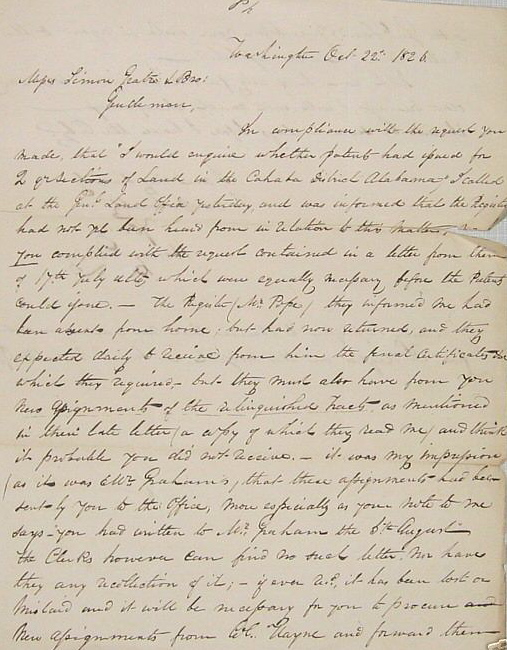 Washington Oct 22d 1826
Messrs Simon Gratz & Bro:
Gentlemen,
In compliance with the request you
made, that "I would enquire whether patents had issued for
2 qr sections of Land in the Cahaba District Alabama" I called
at the Genl Land Office yesterday, and was informed that the Register
had not yet been heard from in relation to this matter, nor
you complied with the request contained in a letter from them
of 17th July ulto, which were equally necessary before the Patent
could issue. — The Register (Mr Pope) they informed me had
been absent from home; but had now returned, and they
expected daily to receive from him the final certificates
which they required — but they must also have from you
New assignments of the relinquished Tracts as mentioned
in their late letter (a copy of which they read me) and think
it probable you did not receive. — it was my impression
(as it was Mr Graham's) that these assignments had been
sent by you to the Office, more especially as your note to me
says "you had written to Mr Graham the 5th August"
the Clerks however can find no such letter. Nor have
they any recollection of it; — if ever it has been lost or
mislaid and it will be necessary for you to procure and
New assignments from Hayne and forward them